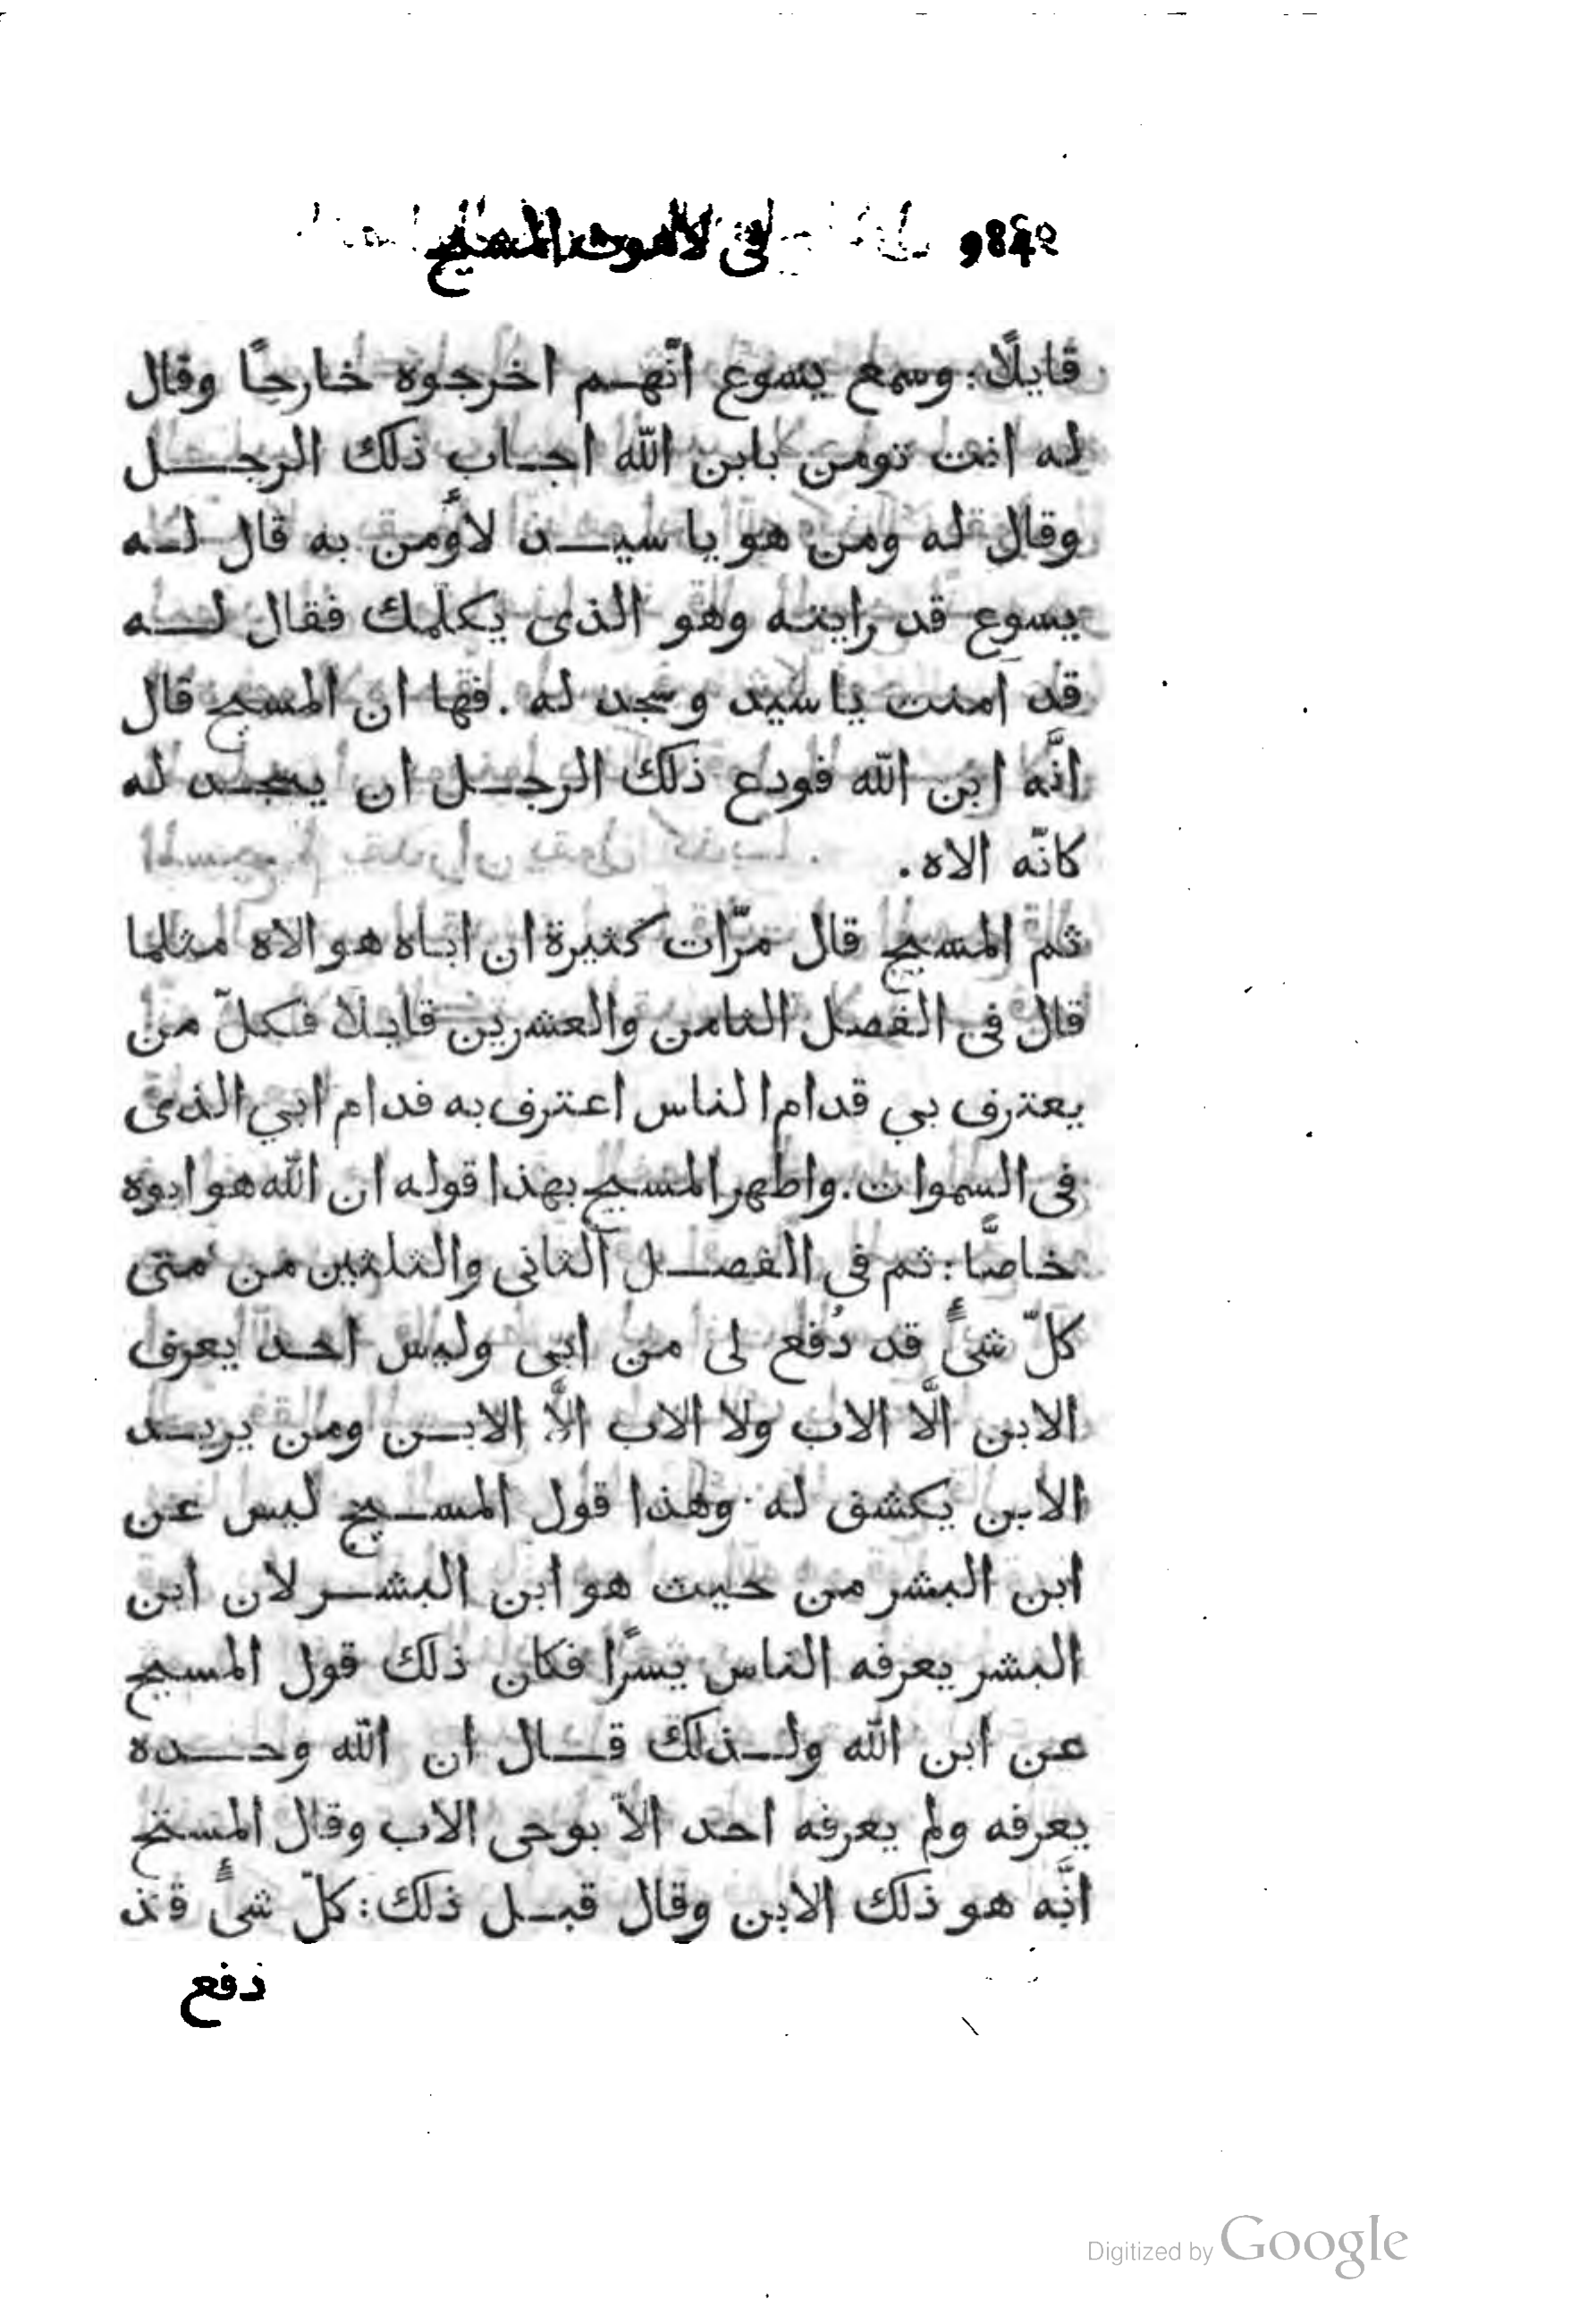 في لاهوت المسيح
قايلًا: وسمع يسوع انّهم اخرجوه خارجًا وقال
له انت تومن بابن الله اجاب ذلك الرجل
وقال له ومن هو يا سيد لأومن به قال له
يسوع قد رايته وهو الذى يكلمك فقال له
قد آمنت يا سيد وسجد له. فها ان المسيح قال
انَّه ابن الله فودع ذلك الرجل ان يسجد له
كانّه الاه.
ثم المسيح قال مرّات كثيرة ان اباه هو الاه مثلما
قال فى الفصل الثامن والعشرين قايلا فكلّ من
يعترف بي قدام الناس اعترف به قدام ابي الذى
فى السموات. واظهر المسيح بهذا قوله ان الله هو ابوه
خاصًّا: ثم فى الفصل الثانى والثلثين من متى
كلّ شىً قد دُفع لى من ابى وليس احد يعرف
الابن الَّا الاب ولا الاب الَّا الابن ومن يريد
الابن يكشف له. وهذا قول المسيح ليس عن
ابن البشر من حيث هو ابن البشر لان ابن
البشر يعرفه الناس يسرًا فكان ذلك قول المسيح
عن ابن الله ولذلك قال ان الله وحده
يعرفه ولم يعرفه احد الّا بوحى الاب وقال المسيح
انَّه هو ذلك الابن وقال قبل ذلك: كلّ شىً قد
دفع
Digitized by Google